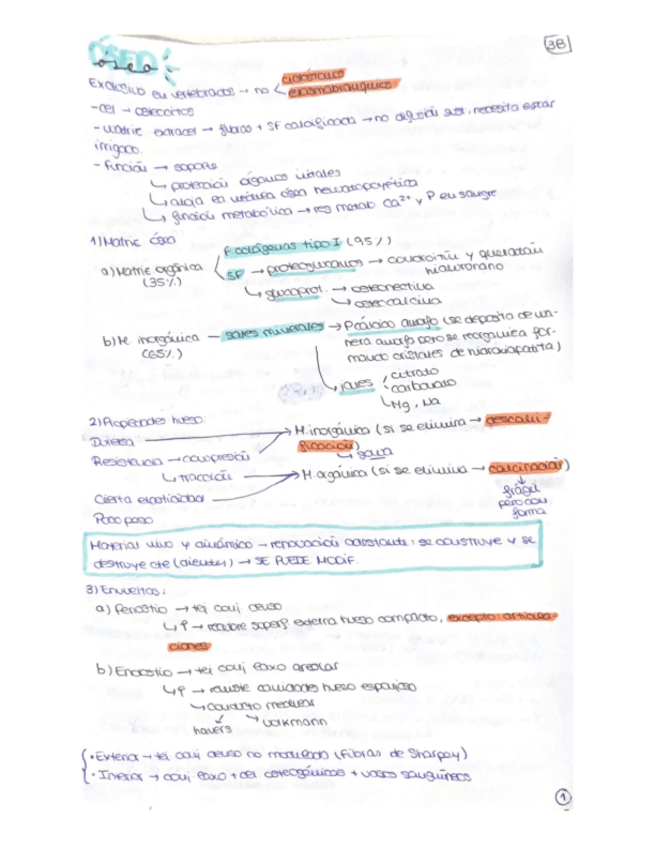 ÓSEO
óseo
3B
ciclóstomos
Exclusivo en vertebrados → no < elasmobranquios
- cel → osteocitos
- Matriz extracel → fibras + SF calcificada → no difusión sust, necesita estar
irrigado.
- Función → soporte
↳ protección órganos vitales
↳ aloja en médula ósea hematopoyética
↳ función metabólica → reg metab Ca²⁺ y P en sangre
1) Matriz ósea
F. colágenas tipo I (95%)
a) Matriz orgánica
SF → proteoglucanos → condroitín y queratán
(35%)
hialuronano
↳ glucoprot. → osteonectina
↳ osteocalcina
b) M. inorgánica — sales minerales → P cálcico amorfo (se deposita de ma-
(65%)
nera amorfa pero se reorganiza for-
mando cristales de hidroxiapatita)
↳ iones
citrato
carbonato
Mg, Na
2) Propiedades hueso:
Dureza → M. inorgánica (si se elimina → descalci-
ficación)
Resistencia → compresión
↳ goma
↳ tracción → M orgánica (si se elimina → calcinación)
frágil
Cierta elasticidad
pero con.
forma
Poco peso
Material vivo y dinámico → renovación constante: se construye y se
destruye cte (dientes) → SE PUEDE MODIF.
3) Envueltas:
a) Periostio → tej conj denso
↳ f → recubre superf externa hueso compacto, excepto: articula-
ciones
b) Endostio → tej conj laxo areolar
↳ f → reviste cavidades hueso esponjoso
↳ conducto medular
havers
volkmann
• Externa → tej conj denso no modelado (Fibras de Sharpey)
• Interna → conj laxo + cel osteogénicas + vasos sanguíneos
1